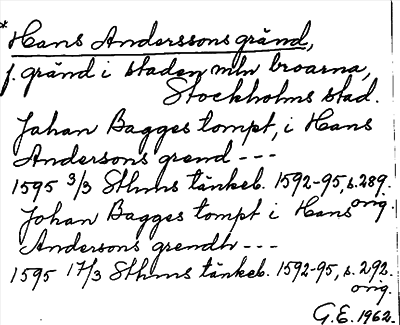 *Hans Anderssons gränd,
f. gränd i staden mln broarna,
Stockholms stad.
Johan Bagges tompt, i Hans
Andersons grend ---
1595 3/3 Sthms tänkeb. 1592-95, s.289.
orig.
Johan Bagges tompt i Hans
Andersons grendh ---
1595 17/3 Sthms tänkeb. 1592-95, s.292.
orig.
G.E. 1962.